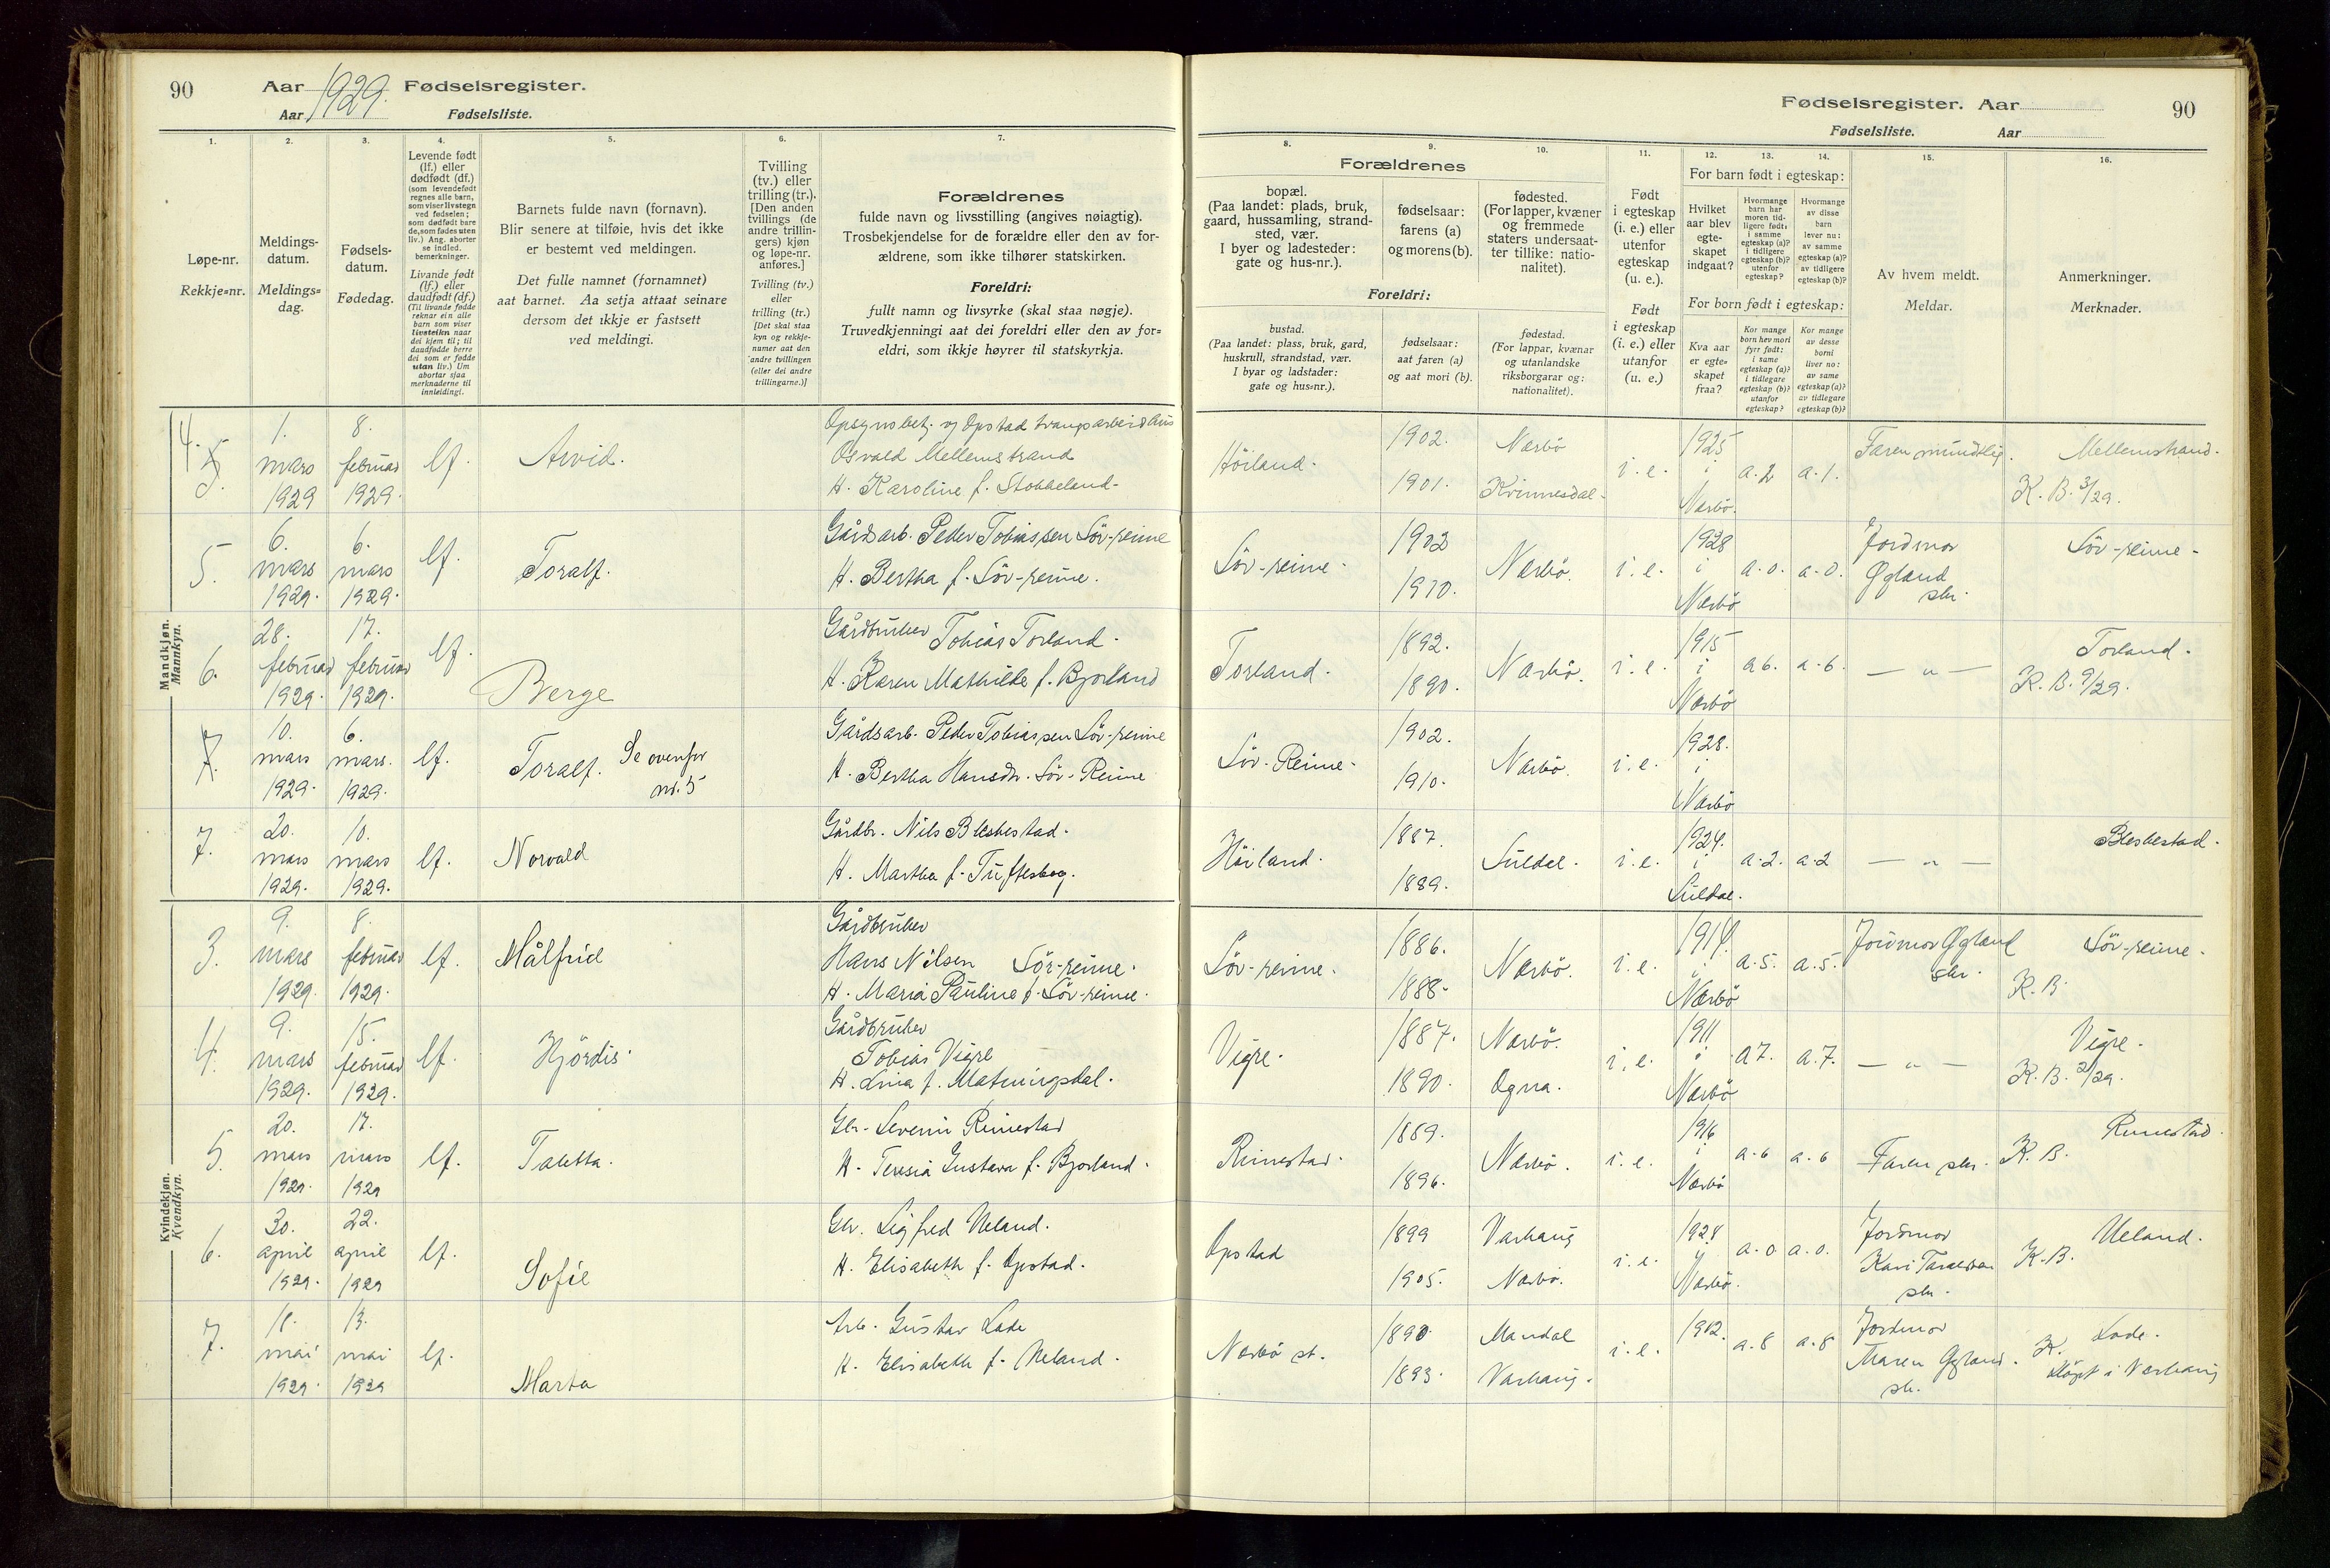 90 Aar 1929. Fødselsregister.
Aar Fødselsliste.
1. 2. 3. 4. 5. 6. 7.
Løpe-nr.
Rekkje=nr.
Meldings-
datum.
Meldings=
dag.
Fødsels-
datum.
Fødedag.
Levende født
(lf.) eller
dødfødt (df.)
(som levendefødt
regnes alle barn,
som viser livstegn
ved fødselen;
som dødfødt bare
de, som fødes uten
liv.) Ang. aborter
se indled.
bemerkninger.
Livande født
(lf.) eller
daudfødt (df.)
(Til livande fødde
reknar ein alle
barn som viser
livsteikn naar
dei kjem til; til
daudfødde berre
dei som er fødde
utan liv.) Um
abortar sjaa
merknaderne til
innleidingi.
Barnets fulde navn (fornavn).
Blir senere at tilføie, hvis det ikke
er bestemt ved meldingen.
Det fulle namnet (fornamnet)
aat barnet. Aa setja attaat seinare
dersom det ikkje er fastsett
ved meldingi.
Tvilling
(tv.) eller
trilling (tr.).
[Den anden
tvillings (de
andre trillin-
gers) kjøn
og løpe-nr.
anføres.]
Tvilling (tv.)
eller
trilling (tr.)
[Det skal staa
kyn og rekkje-
numer aat den
andre tvillingen
(eller dei andre
trillingarne.)]
Forældrenes
fulde navn og livsstilling (angives nøiagtig).
Trosbekjendelse for de forældre eller den av for-
ældrene, som ikke tilhører statskirken.
Foreldri:
fullt namn og livsyrke (skal staa nøgje).
Truvedkjenningi aat dei foreldri eller den av for=
eldri, som ikkje høyrer til statskyrkja.
Mandkjøn.
Mannkyn.
4. 5. 1. mars 1929 8. februar 1929. lf. Arvid.
Opsynsbetj. v/ Opstad tvangsarbeidshus
Osvald Mellemstrand
H. Karoline f. Stokkeland.
5. 6. mars 1929. 6. mars 1929. lf. Toralf.
Gårdsarb. Peder Tobiassen Sör-reime
H. Bertha f. Sör-reime.
6. 28. februar 1929. 17. februar 1929. lf. Berge
Gårdbruker Tobias Torland.
H. Karen Mathilde f. Bjorland
7. 10. mars 1929. 6. mars. 1929. lf. Toralf. Se ovenfor nr. 5
Gårdsarb. Peder Tobiassen Sör-reime
H. Bertha Hansdr. Sör-Reime
7. 20. mars 1929. 10. mars 1929. lf. Norvald
Gårdbr. Nils Bleskestad.
H. Martha f. Tufteskog.
Kvindekjøn.
Kvendkyn.
3. 9. mars 1929. 8. februar 1929. lf. Målfrid
Gårdbruker
Hans Nilsen Sör-reime.
H. Maria Pauline f. Sör-reime.
4. 9. mars 1929. 15. februar 1929. lf. Hjördis.
Gårdbruker
Tobias Vigre
H. Lina f. Matningsdal.
5. 20. mars 1929. 17. mars 1929 lf. Taletta.
Gbr. Severin Rimestad
H. Teresia Gustava f. Bjorland.
6. 30. april 1929. 22. april 1929 lf. Sofie
Gbr. Sigfred Ueland.
H. Elisabeth f. Opstad.
7. 18. mai 1929. 13. mai 1929 lf. Marta
Arb. Gustav Lode
H. Elisabeth f. Ueland.
Fødselsregister. Aar 90
Fødselsliste. Aar
8. 9. 10. 11. 12. 13. 14. 15. 16.
Forældrenes
bopæl.
(Paa landet: plads, bruk,
gaard, hussamling, strand-
sted, vær.
I byer og ladesteder:
gate og hus-nr.).
fødselsaar:
farens (a)
og morens (b).
fødested.
(For lapper, kvæner
og fremmede
staters undersaat-
ter tillike: natio-
nalitet).
Foreldri:
bustad.
(Paa landet: plass, bruk, gard,
huskrull, strandstad, vær.
I byar og ladstader:
gate og hus=nr.).
fødselsaar:
aat faren (a)
og aat mori (b).
fødestad.
(For lappar, kvænar
og utanlandske
riksborgarar og:
nationalitet).
Født
i egteskap
(i. e.) eller
utenfor
egteskap
(u. e.).
Født
i egteskap
(i. e.) eller
utanfor
(u. e.)
For barn født i egteskap:
Hvilket
aar blev
egte-
skapet
indgaat?
Hvormange
barn har
moren tid-
ligere født:
i samme
egteskap (a)?
i tidligere
egteskap (b)?
utenfor
egteskap?
Hvormange
av disse
barn
lever nu:
av samme
egteskap (a)?
av tidligere
egteskap (b)?
For born født i egteskap:
Kva aar
er egte=
skapet
fraa?
Kor mange
born hev mori
fyrr født:
i same
egteskap (a)?
i tidlegare
egteskap (b)?
utanfor
egteskap?
Kor mange
av desse
borni
liver no:
av same
egteskap (a)?
av tidlegare
egteskap (b)?
Av hvem meldt.
Meldar.
Anmerkninger.
Merknader.
Hörland. 1902. 1901. Nærbö Kvinnesdal. i. e. 1925 i Nærbö. a. 2 a. 1. Faren mündtlig. Mellemstrand. K. B. 3/29.
Sör-reime. 1902 1910. Nærbö. i. e. 1928 i Nærbö a. 0. a. 0. Jordmor Øgland skr. Sör-reime.
Torland. 1892. 1890. Nærbö. i. e. 1915 i Nærbö a 6. a. 6. — „ — Torland. K. B. 9/29.
Sör-Reime. 1902. 1910. Nærbö. i. e. 1928. i Nærbö
Hörland. 1887. 1889. Suldal. i. e. 1924. i Suldal. a. 2. a. 2 — „ — Bleskestad.
Sör-reime. 1886. 1888. Nærbö. i. e. 1914. i Nærbö a. 5. a. 5. Jordmor Øgland skr. Sör-reime. K. B.
Vigre. 1887. 1890. Nærbö. Ogna. i. e. 1911 i Nærbö a 7. a. 7. — „ — Vigre. K. B. 2/29.
Rimestad. 1889. 1896. Nærbö. i. e. 1916 i Nærbö a. 6 a. 6 Faren skr. Rimestad. K. B.
Opstad 1899 1905. Varhaug Nærbö. i. e. 1924 i Nærbö. a. 0 a. 0. Jordmor Kari skr. Ueland. K. B.
Nærbö st. 1890. 1893. Mandal Varhaug. i. e. 1912. a. 8 a. 8 Jordmor Maren Øgland. skr. Lode. K. döpt i Varhaug